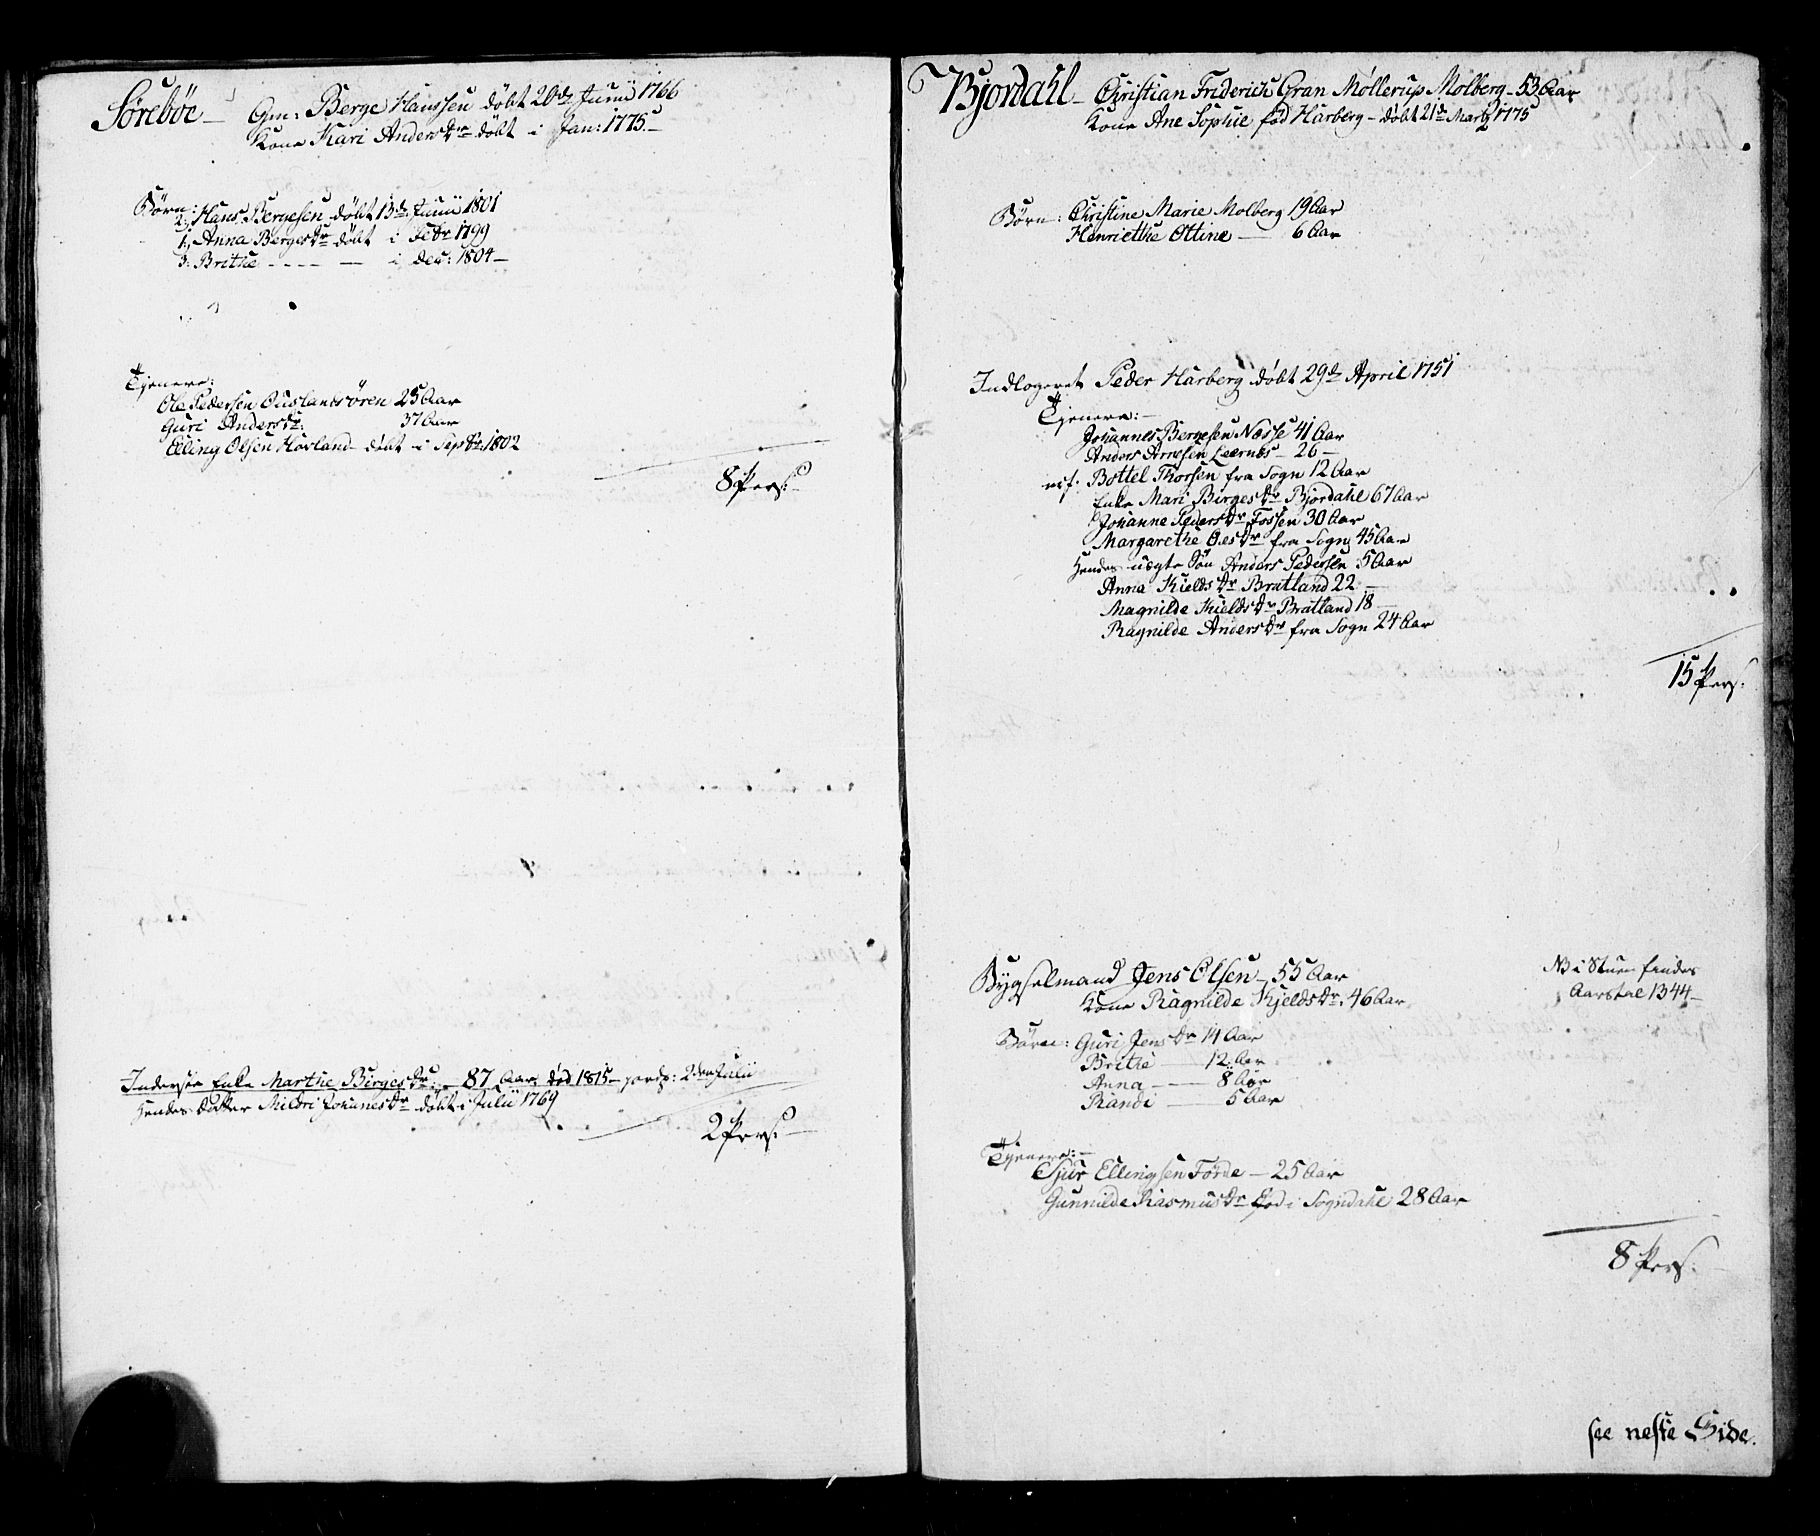 Sørebøe – Gm: Berge Hanssen døbt 20de Junii 1766
Kone Kari Andersdr døbt i Jan: 1775. –
Børn:
2: Hans Bergesen døbt 13de Junii 1801
1: Anna Bergesdr døbt i Febr 1799
3: Brithe - - - - — i Dec: 1804 –
Tjenere:
Ole Pedersen Ouslandsøren 25 Aar
Guri Andersdr: 37 Aar
Elling Olsen Høvland døbt i Septbr: 1802
8 Pers: –
Inderste Enke Marthe Birgesdr: – 87 Aar død 1815 – 2den Julii
Hendes Datter Mildri Johannesdr døbt i Julii 1769
2 Pers: –
Bjordahl – Christian Friderich Gran Møllerup Molberg – 53 Aar
Kone Ane Sophie fød Harberg – døbt 21de Marti 1775
Børn: Christine Marie Molberg 19 Aar
Henriethe Ottine — 6 Aar
Indlogeret Peder Harberg døbt 29de April 1751
Tjenere: –
Johannes Bergesen Næsse 41 Aar
Anders Arnesen – 26 –
Bottel Thorsen fra Sogn 12 Aar
Enke Mari Birgesdr Bjordahl 67 Aar
Johanne Pedersdr Fossen 30 Aar
Margarethe Olesdr fra Sogn 45 Aar
Hendes uægte Søn Anders Pedersen 5 Aar
Anna Kieldsdr Bratland 22 –
Magnilde Kieldsdr Bratland 18 –
Ragnilde Andersdr fra Sogn 24 Aar
15 Pers:
Bygselmand Jens Olsen – 55 Aar
Kone Ragnilde Kjeldsdr: 46 Aar
NB i Stuen findes
Aarstal 1344 –
Børn: Guri Jensdr 14 Aar
Brithe — 12 Aar
Anna — 8 Aar
Randi — 5 Aar
Tjenere: –
Sjur Ellingsen Førde – 25 Aar
Gunnilde Rasmusdr i Sogndahl 28 Aar
8 Pers:
see neste Side.